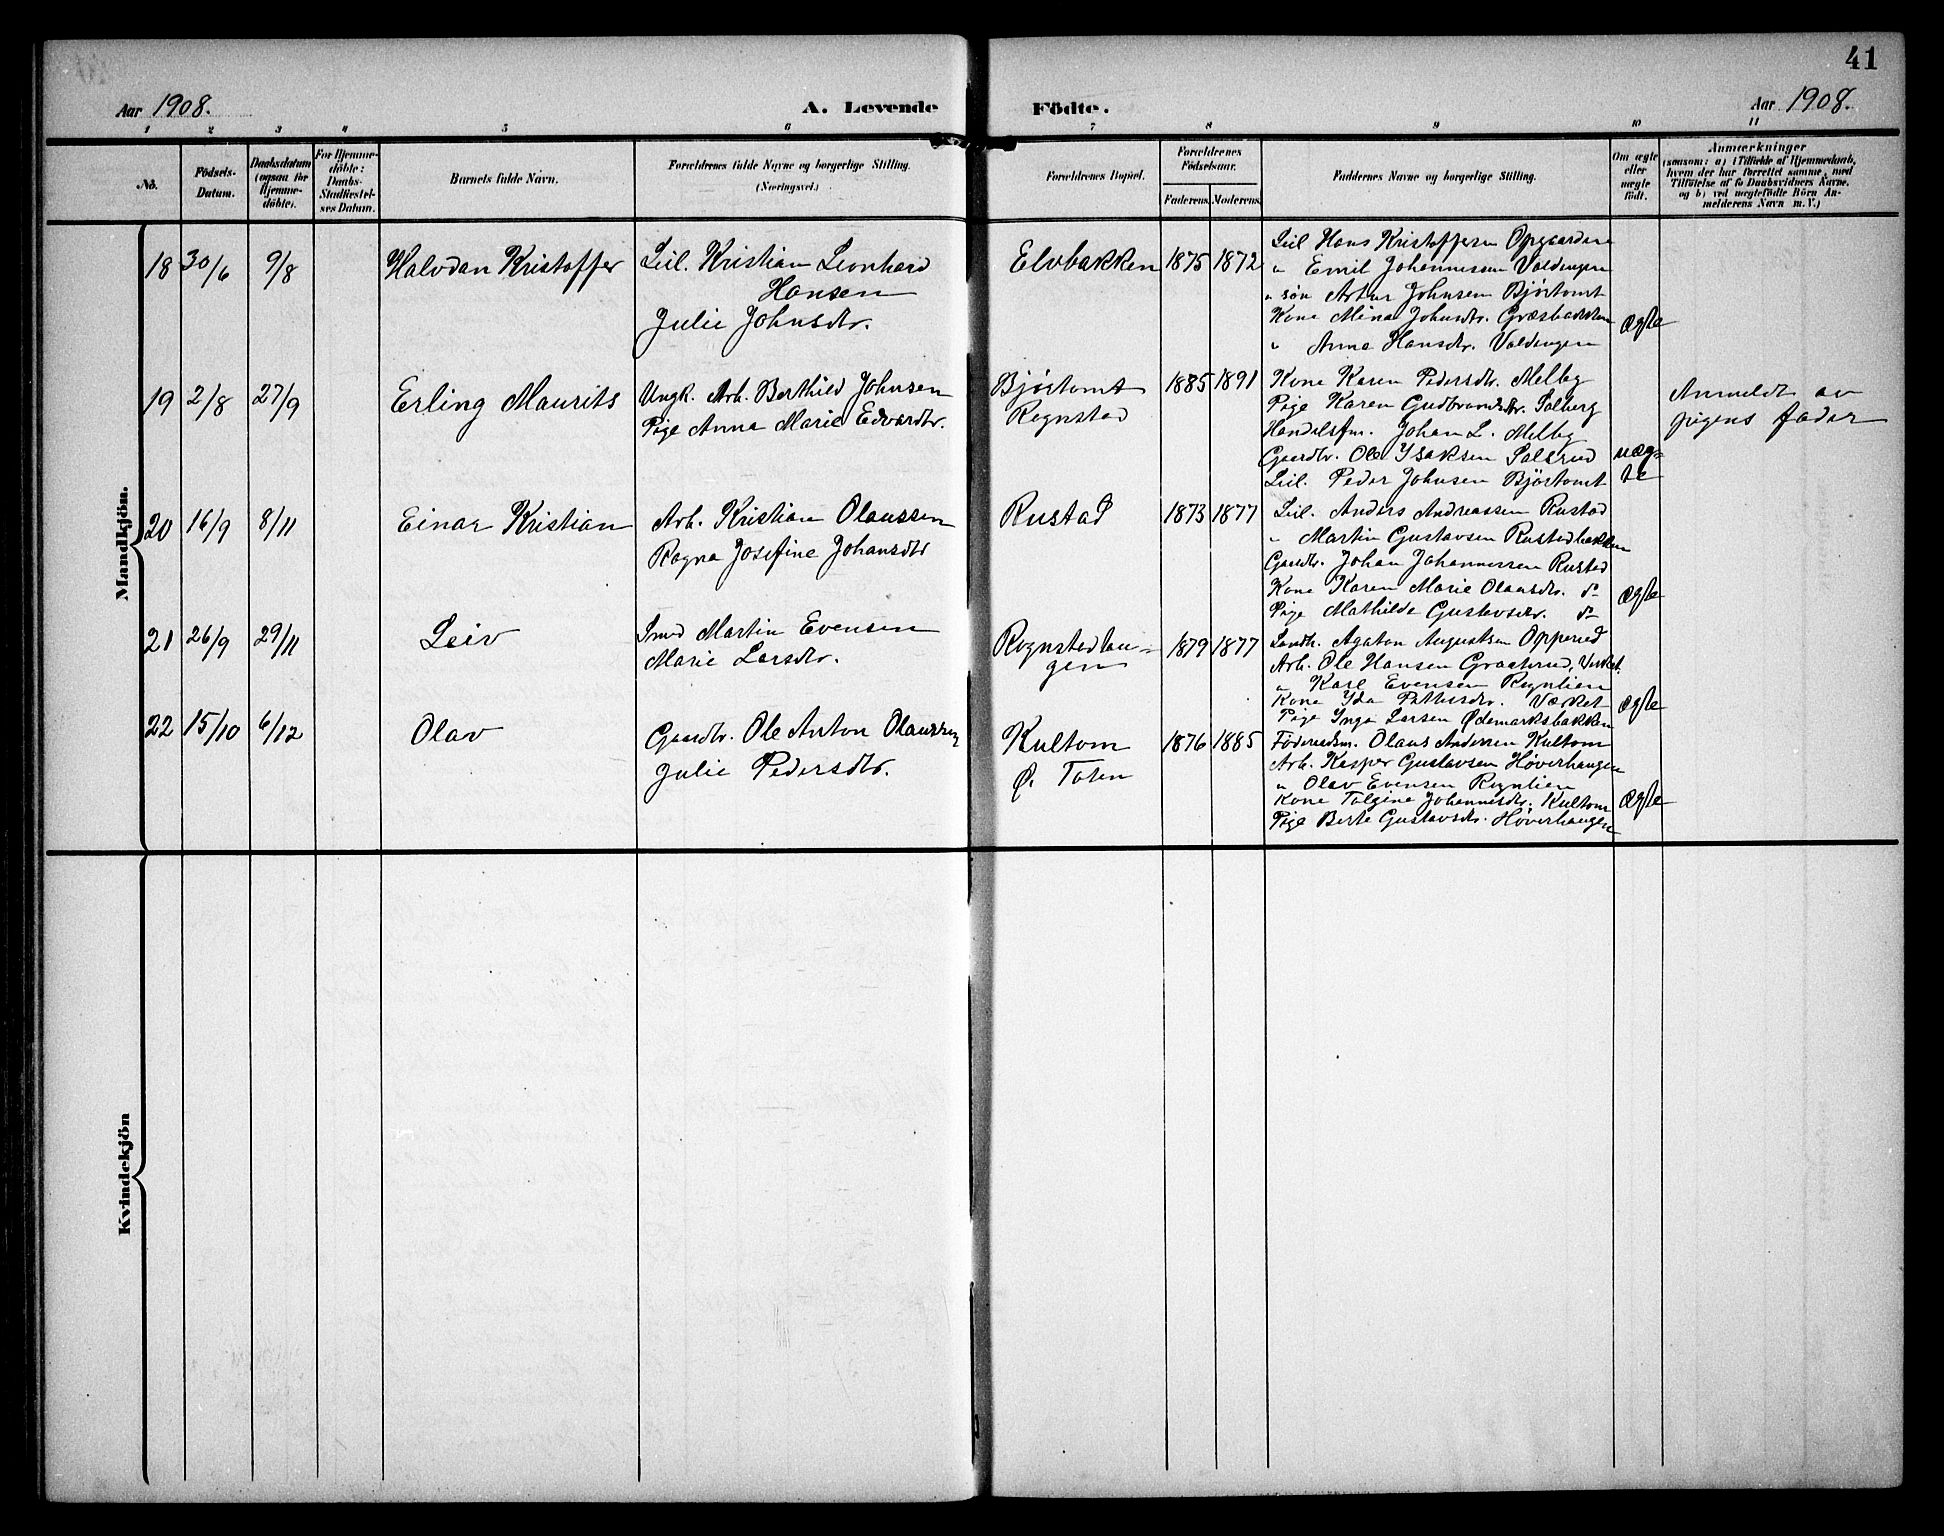 41
Aar 1908. A. Levende Födte. Aar 1908.
1 2 3 4 5 6 7 8 9 10 11
No.
Födsels-
Datum.
Daabsdatum
(ogsaa for
Hjemme-
döbte).
For Hjemme-
döbte:
Daabs-
Stadfæstel-
ses Datum.
Barnets fulde Navn.
Forældrenes fulde Navne og borgerlige Stilling.
(Næringsvei.)
Forældrenes Bopæl.
Forældrenes
Födselsaar.
Faderens. Moderens.
Faddernes Navne og borgerlige Stilling.
Om ægte
eller
uægte
födt.
Anmærkninger
(saasom: a) i Tilfælde af Hjemmedaab,
hvem der har forrettet samme, med
Tilföielse af to Daabsvidners Navne,
og b) ved uægtefödte Börn An-
melderens Navn m. V.)
Mandkjön.
18 30/6 9/8 Halvdan Kristoffer
Leil. Kristian Leonhard
Hansen
Julie Johnsdtr.
Elvbakken 1875 1872
Leil Hans Kristoffersen Opgaarden
" Emil Johannessen Valdengen
" søn Artur Johnsen Bjørtomt
Kone Mina Johnsdtr. Græsbakken
" Anna Hansdtr. Valdengen
ægte
19 2/8 27/9 Erling Maurits
Ungk. Arb. Berthild Johnsen
Pige Anna Marie Edvardtr.
Bjørtomt
Rognstad
1885 1891
Kone Karen Pedersdtr. Melby
Pige Karen Gudbrandsdtr. Solberg
Handelsfm. Johan L. Melby
Gaardbr. Ole Isaksen
Leil. Peder Johnsen Bjørtomt
uæg-
te
Anmeldt av
pigens fader
20 16/9 8/11 Einar Kristian
Arb. Kristian Olaussen
Ragna Josefine Johansdtr
Rustad 1873 1877
Leil. Anders Andreassen Rustad
" Martin Gustavsen Rustadbakken
Gaardbr. Johan Johannessen Rustad
Kone Karen Marie Olausdtr. d-
Pige Mathilde Gustavsdtr. d-
ægte
21 26/9 29/11 Leiv
Smed Martin Evensen
Marie Larsdtr.
Rognstadhau-
gen
1879 1877
Landh. Agaton Augustsen Opperud
Arb. Ole Hansen Graaterud, Verket.
" Karl Evensen Rognlien
Kone Ida Pettersdtr. Værket
Pige Inga Larsen Ødemarksbakken
ægte
22 15/10 6/12 Olav
Gaardbr. Ole Anton Olaussen
Julie Pedersdtr.
Kultom
Ø. Toten
1876 1885
Föderaadsm. Olaus Andersen Kultom
Arb. Kasper Gustavsen Høverhaugen
" Olav Evensen Rognlien
Kone Tolgine Johannesdtr. Kultom
Pige Berte Gustavsdtr. Høverhaugen
ægte
Kvindekjön